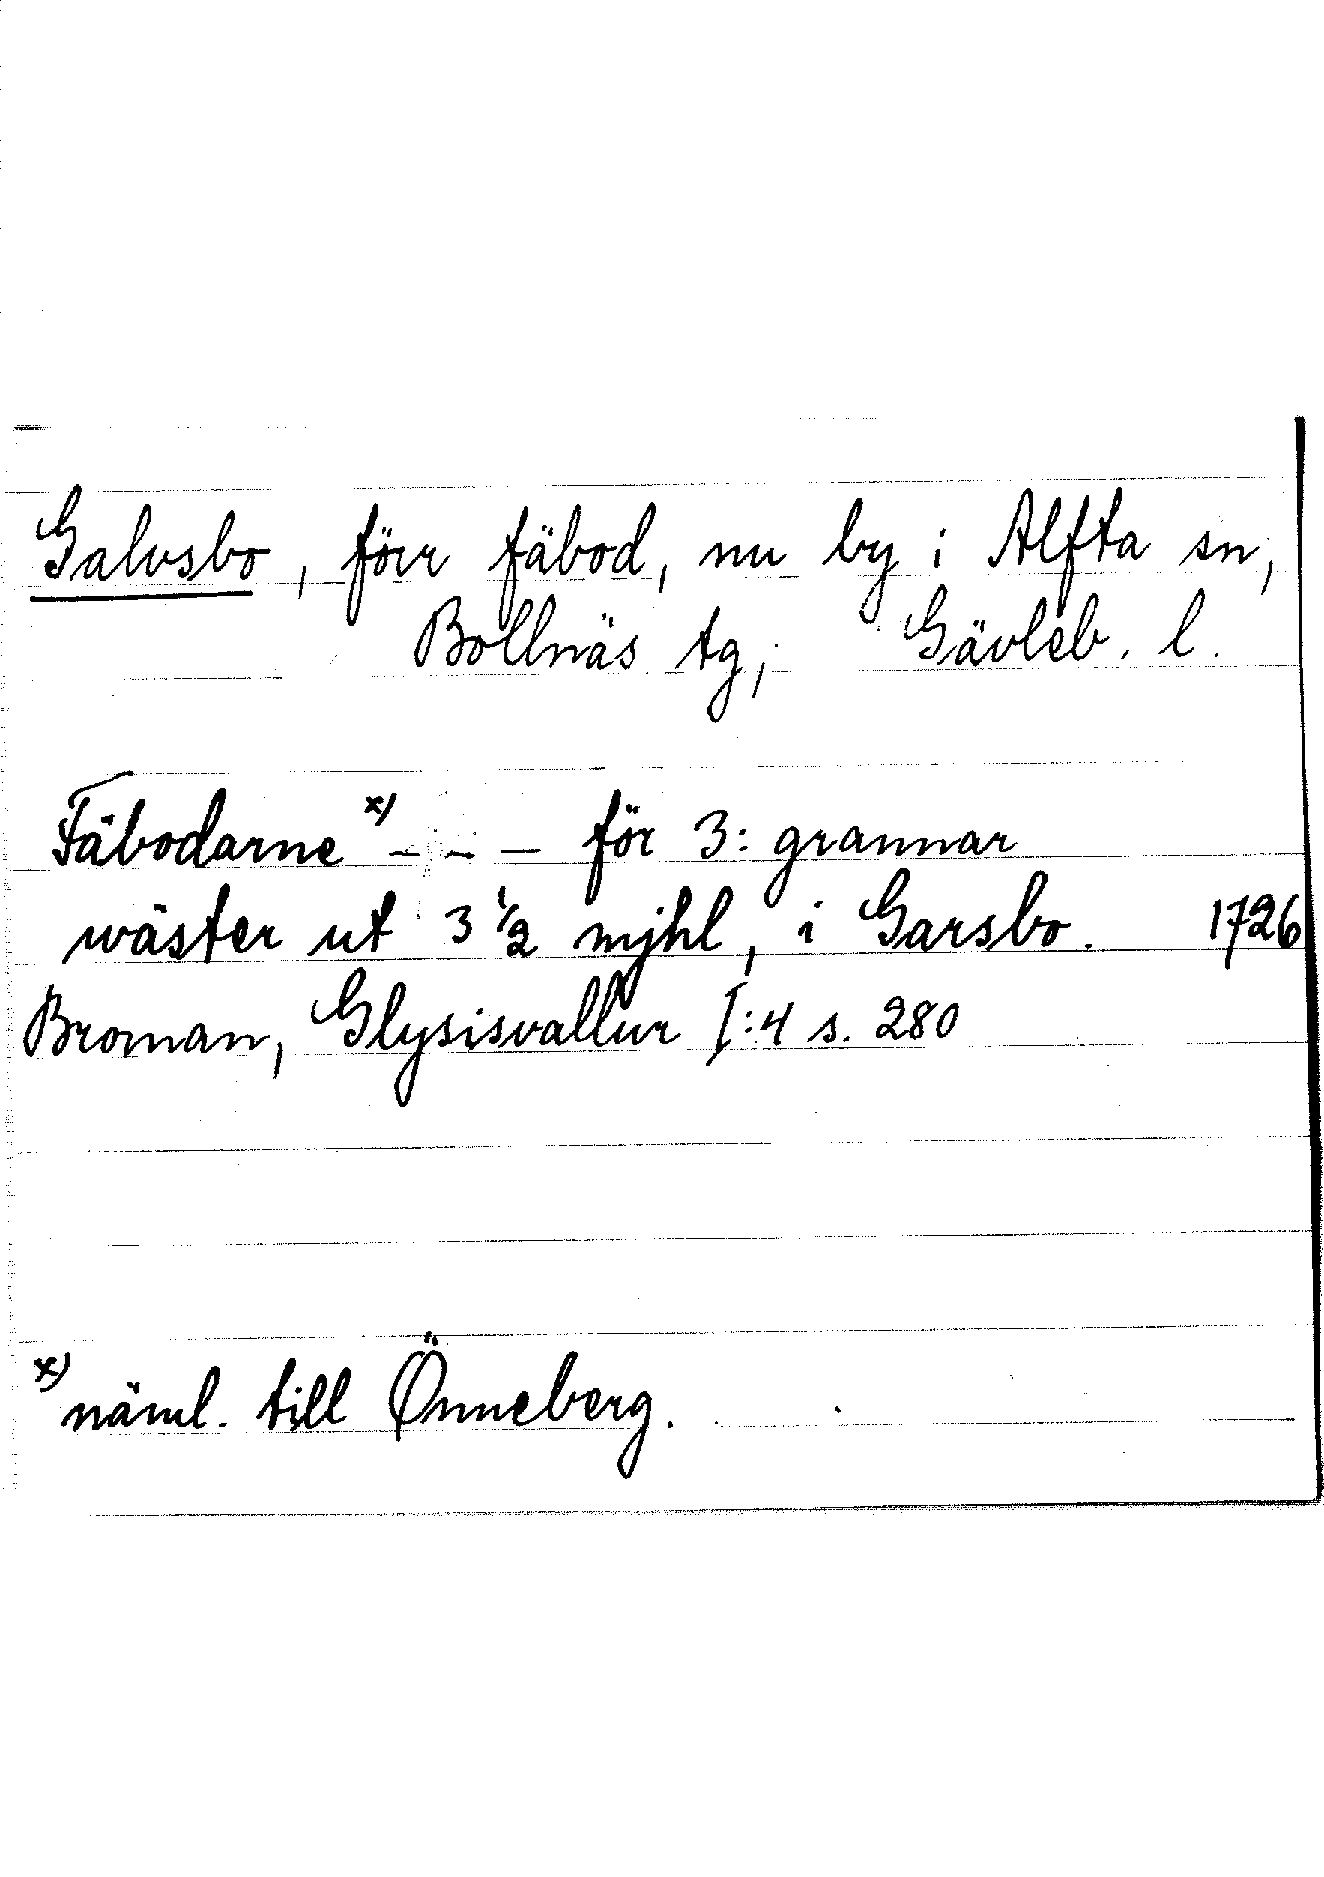 Galvsbo, förr fäbod, nu by i Alfta sn,
Bollnäs tg, Gävleb. l.
Fäbodarne x) - - - för 3: grannar
wäster ut 3 1/2 mjhl, i Garsbo. 1726
Broman, Glysisvallur I:4 s. 280
x) näml. till Önneberg.